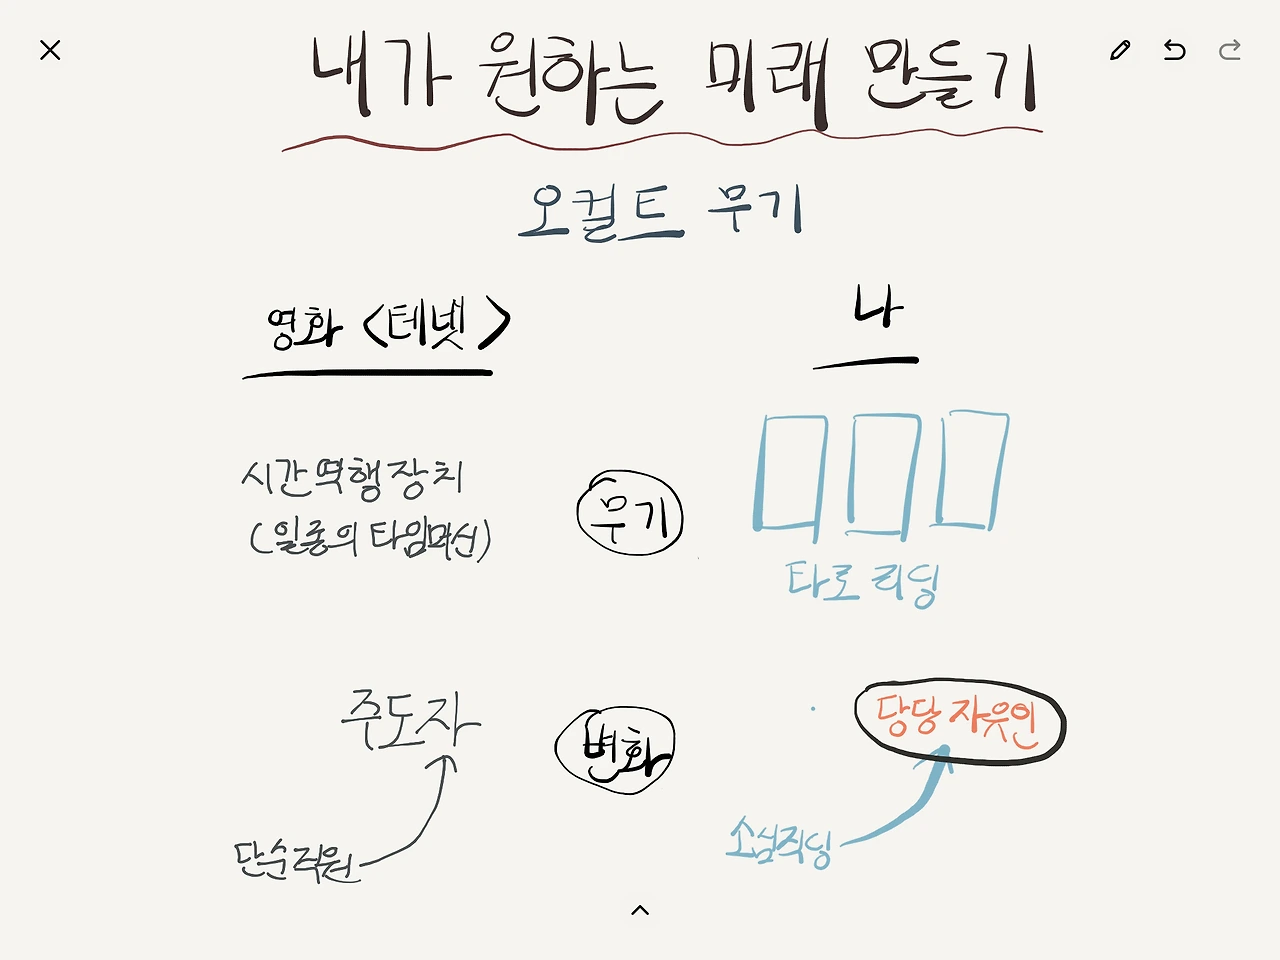 내가 원하는 미래 만들기
오컬트 무기
영화 <테넷>
나
시간역행장치
(일종의 타임머신)
무기
타로 리딩
주도자
변화
당당 자유인
단순직원
소심직딩